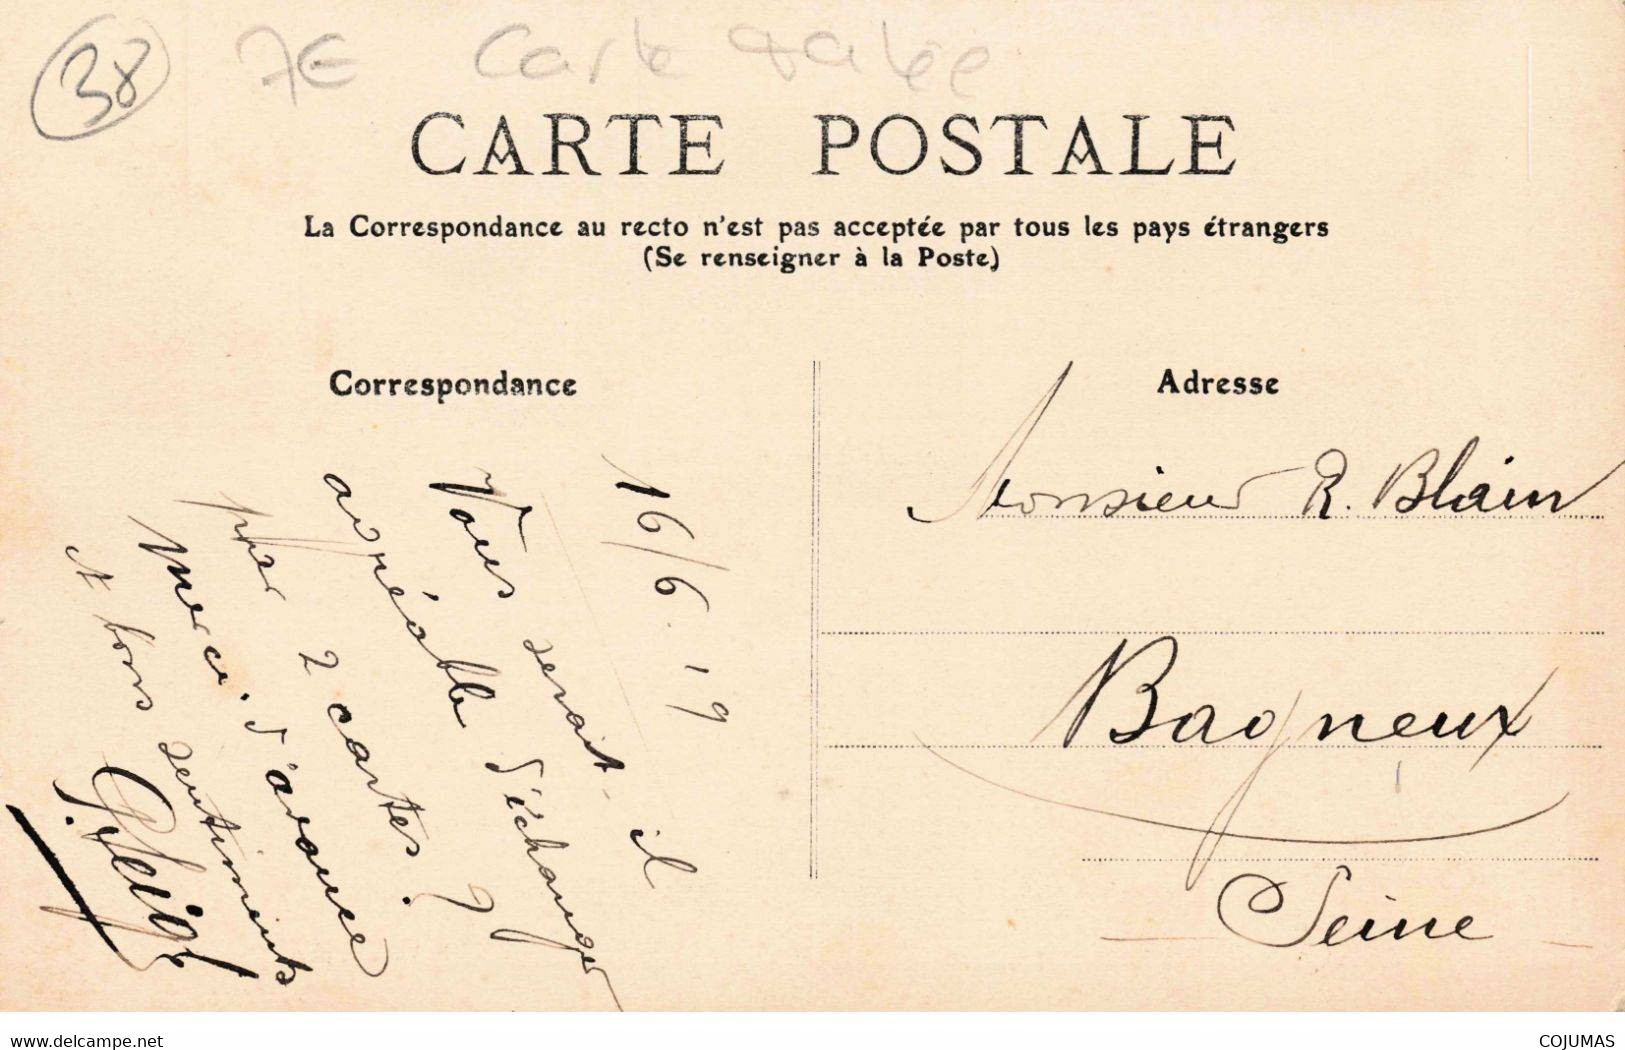 38 7E Carte
CARTE POSTALE
La Correspondance au recto n'est pas acceptée par tous les pays étrangers
(Se renseigner à la Poste)
Correspondance
16/6.19
Vous serait-il
agréable d'échanger
par 2 cartes?
Merci d'avance
et bons sentiments
Adresse
Monsieur R. Blain
Bagneux
Seine
www.delcampe.net
COJUMAS